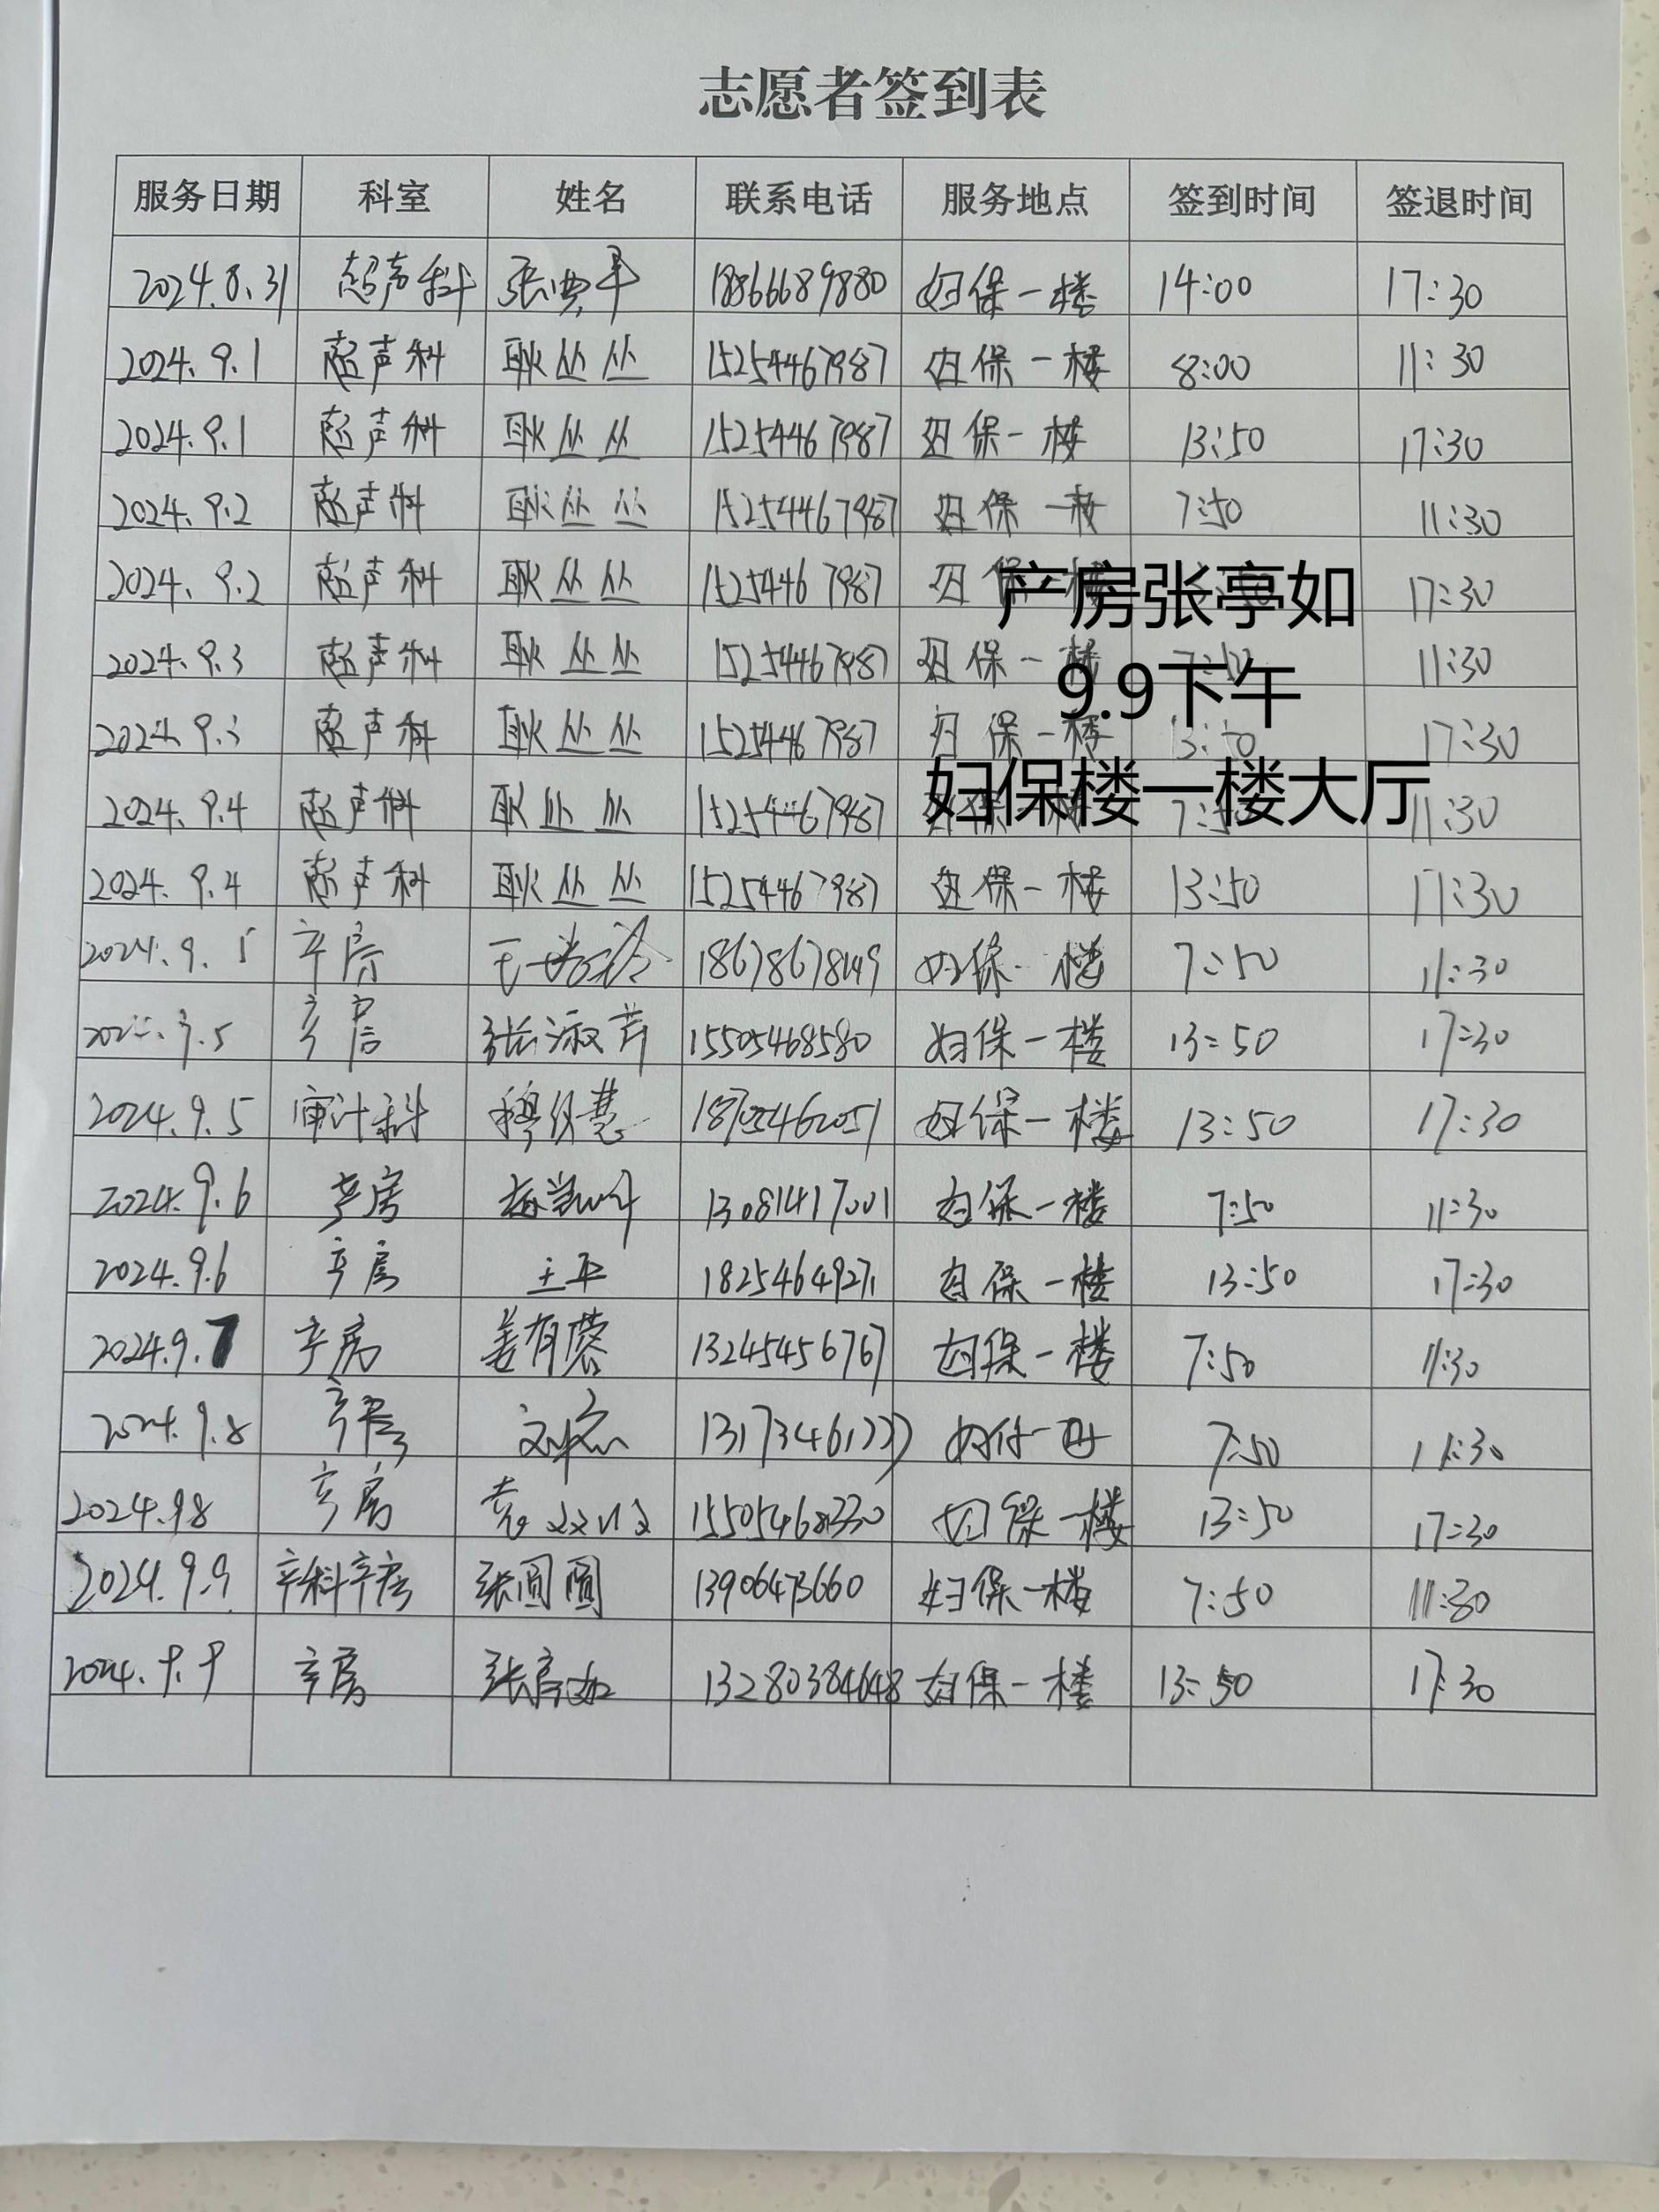 志愿者签到表
服务日期 科室 姓名 联系电话 服务地点 签到时间 签退时间
2024.8.31 超声科 张 18866689880 妇保一楼 14:00 17:30
2024.9.1 超声科 耿丛丛 15254467987 妇保一楼 8:00 11:30
2024.9.1 超声科 耿丛丛 15254467987 妇保一楼 13:50 17:30
2024.9.2 超声科 耿丛丛 15254467987 妇保一楼 7:50 11:30
2024.9.2 超声科 耿丛丛 15254467987 妇保 17:30
产房张亭如
2024.9.3 超声科 耿丛丛 15254467987 妇保一楼 7:50 11:30
9.9下午
2024.9.3 超声科 耿丛丛 15254467987 妇保一楼 13:50 17:30
妇保楼一楼大厅
2024.9.4 超声科 耿丛丛 15254467987 7:50 11:30
2024.9.4 超声科 耿丛丛 15254467987 妇保一楼 13:50 17:30
2024.9.5 产房 妇保一楼 7:50 11:30
9.5 产房 张淑芹 15505468580 妇保一楼 13:50 17:30
2024.9.5 审计科 18705462051 妇保一楼 13:50 17:30
2024.9.6 产房 13081417001 妇保一楼 7:50 11:30
2024.9.6 产房 王平 妇保一楼 13:50 17:30
2024.9.7 产房 姜有蓉 13245456767 妇保一楼 7:50 11:30
2024.9.8 产房 7:50 11:30
2024.9.8 产房 15505468330 妇保一楼 13:50 17:30
2024.9.9 产科产房 张圆圆 13906473660 妇保一楼 7:50 11:30
2024.9.9 产房 张亭如 13280384648 妇保一楼 13:50 17:30